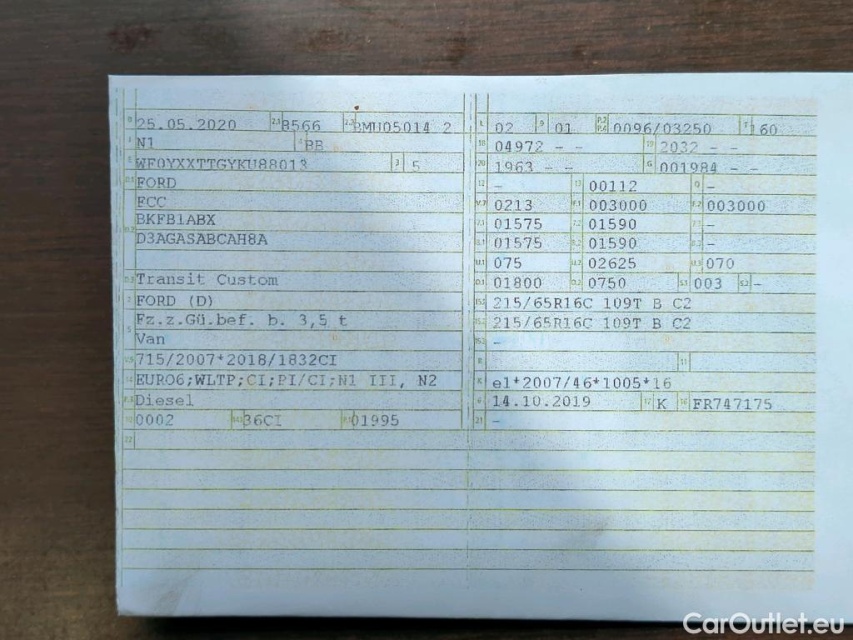 25.05.2020 8566 BMU05014 2
N1 BB
WF0YXXTTGYKU88013 5
FORD
FCC
BKFB1ABX
D3AGASABCAH8A
Transit Custom
FORD (D)
Fz.z.Gü.bef. b. 3,5 t
Van
715/2007*2018/1832CI
EURO6;WLTP;CI;PI/CI;N1 III, N2
Diesel
0002 36CI 01995
02 01 0096/03250 160
04972 - - 2032 - -
1963 - - 001984 - -
- 00112 -
0213 003000 003000
01575 01590 -
01575 01590 -
075 02625 070
01800 0750 003 -
215/65R16C 109T B C2
215/65R16C 109T B C2
-
e1*2007/46*1005*16
14.10.2019 K FR747175
-
CarOutlet.eu